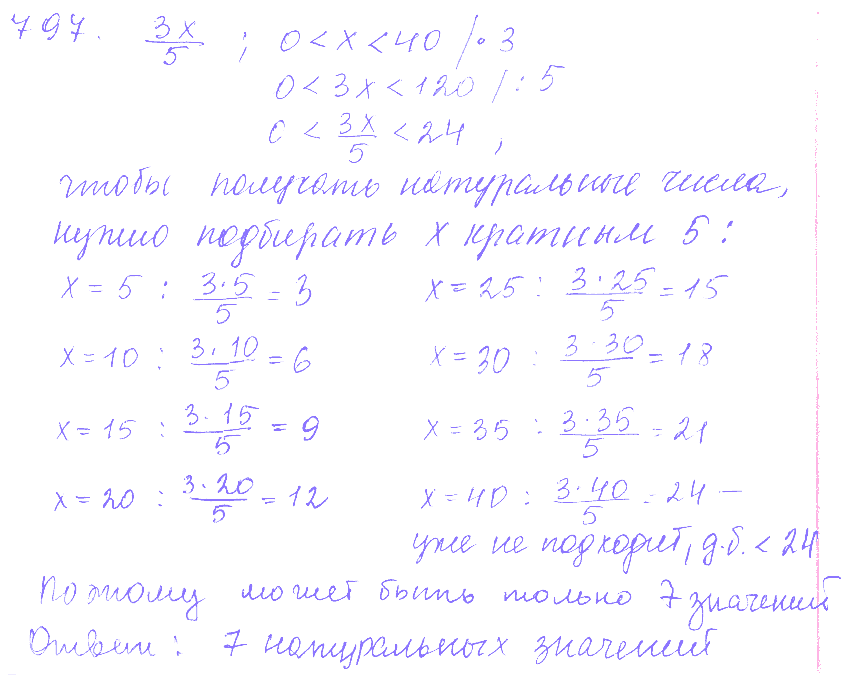 797. 3x/5 ; 0 < x < 40 / · 3
0 < 3x < 120 / : 5
0 < 3x/5 < 24 ,
чтобы получать натуральные числа,
нужно подбирать x кратным 5 :
x = 5 : 3·5/5 = 3 x = 25 : 3·25/5 = 15
x = 10 : 3·10/5 = 6 x = 30 : 3·30/5 = 18
x = 15 : 3·15/5 = 9 x = 35 : 3·35/5 = 21
x = 20 : 3·20/5 = 12 x = 40 : 3·40/5 = 24 —
уже не подходит, д.б. < 24
Поэтому может быть только 7 значений
Ответ : 7 натуральных значений